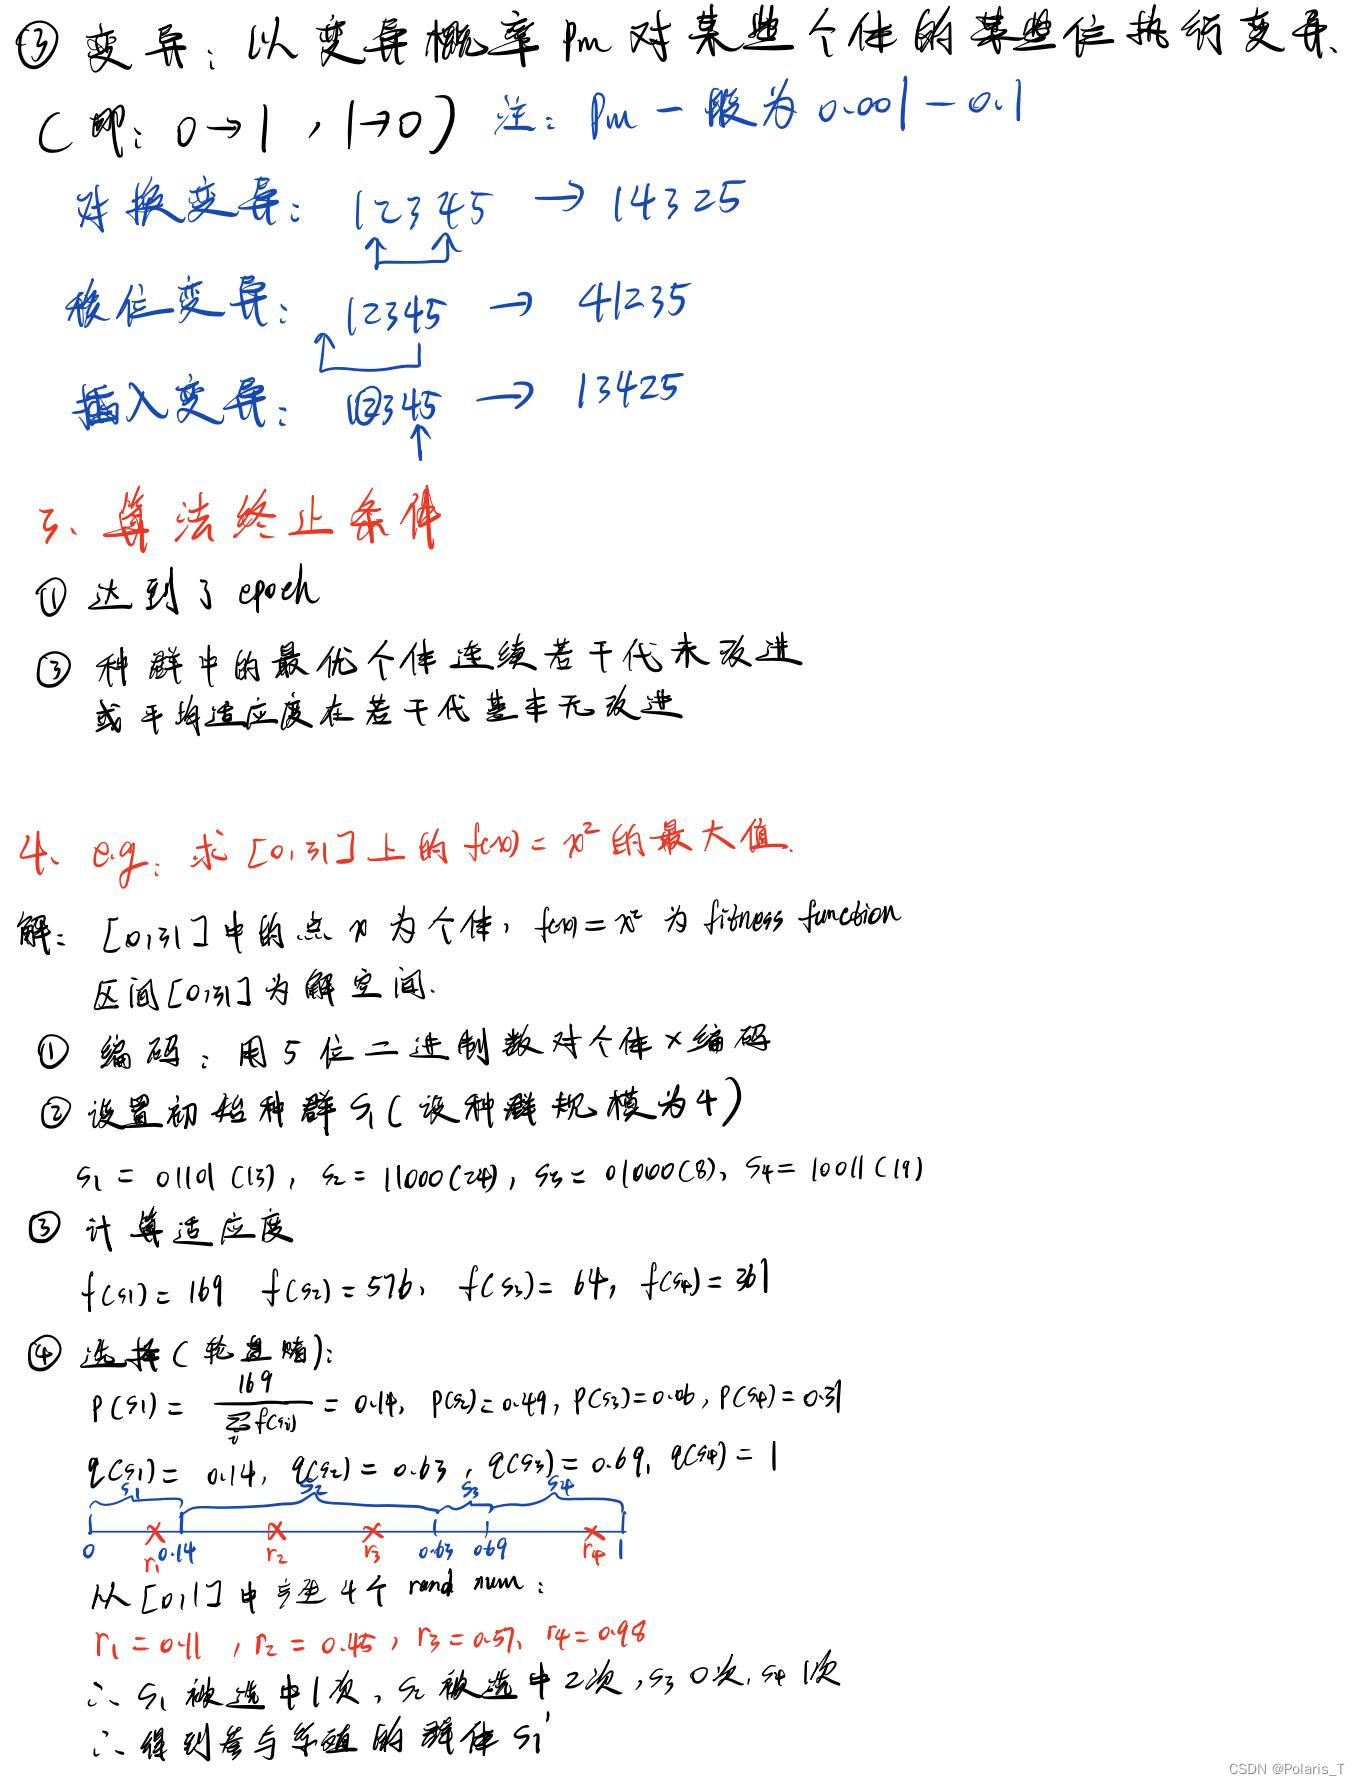 ③ 变异：以变异概率 Pm 对某些个体的某些位执行变异、
（即：0→1，1→0）注：Pm 一般为 0.001-0.1
对换变异：12345 → 14325
移位变异：12345 → 41235
插入变异：1②345 → 13425
3、算法终止条件
① 达到了 epoch
③ 种群中的最优个体连续若干代未改进
或平均适应度在若干代基本无改进
4、e.g：求[0,31]上的 f(x)=x² 的最大值.
解：[0,31]中的点 x 为个体，f(x)=x² 为 fitness function
区间[0,31]为解空间.
① 编码：用 5 位二进制数对个体 x 编码
② 设置初始种群 S1（设种群规模为 4）
S1 = 01101 (13), S2 = 11000 (24), S3 = 01000 (8), S4 = 10011 (19)
③ 计算适应度
f(s1) = 169 f(s2) = 576, f(s3) = 64, f(s4) = 361
④ 选择（轮盘赌）：
P(s1) = 169 / ∑i f(si) = 0.14, P(s2) = 0.49, P(s3) = 0.06, P(s4) = 0.31
q(s1) = 0.14, q(s2) = 0.63, q(s3) = 0.69, q(s4) = 1
s1 s2 s3 s4
0 r1 0.14 r2 r3 0.63 0.69 r4 1
从[0,1]中产生 4 个 rand num：
r1 = 0.11, r2 = 0.45, r3 = 0.57, r4 = 0.98
∴ S1 被选中 1 次, S2 被选中 2 次, S3 0 次, S4 1 次
∴ 得到参与繁殖的群体 S1'
CSDN @Polaris_T